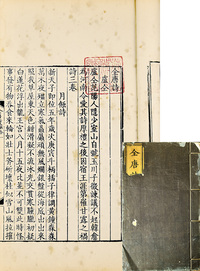 全唐詩
盧仝
盧仝范陽人隱少室山自號玉川子徵諫議不起韓愈
為河南令愛其詩厚禮之後因宿王涯第罹甘露之禍
詩三卷
月蝕詩
新天子即位五年歲次庚寅斗柄插子律調黃鐘森森
萬木夜殭立寒氣贔屓頑無風爛銀盤從海底出出來
照我草屋東天色紺滑凝不流冰光交貫寒朣朧初疑
白蓮花浮出龍王宮八月十五夜比並不可雙此時怪
事發有物吞食來輪如壯士斧斫壞桂似雪山風拉摧
全唐詩